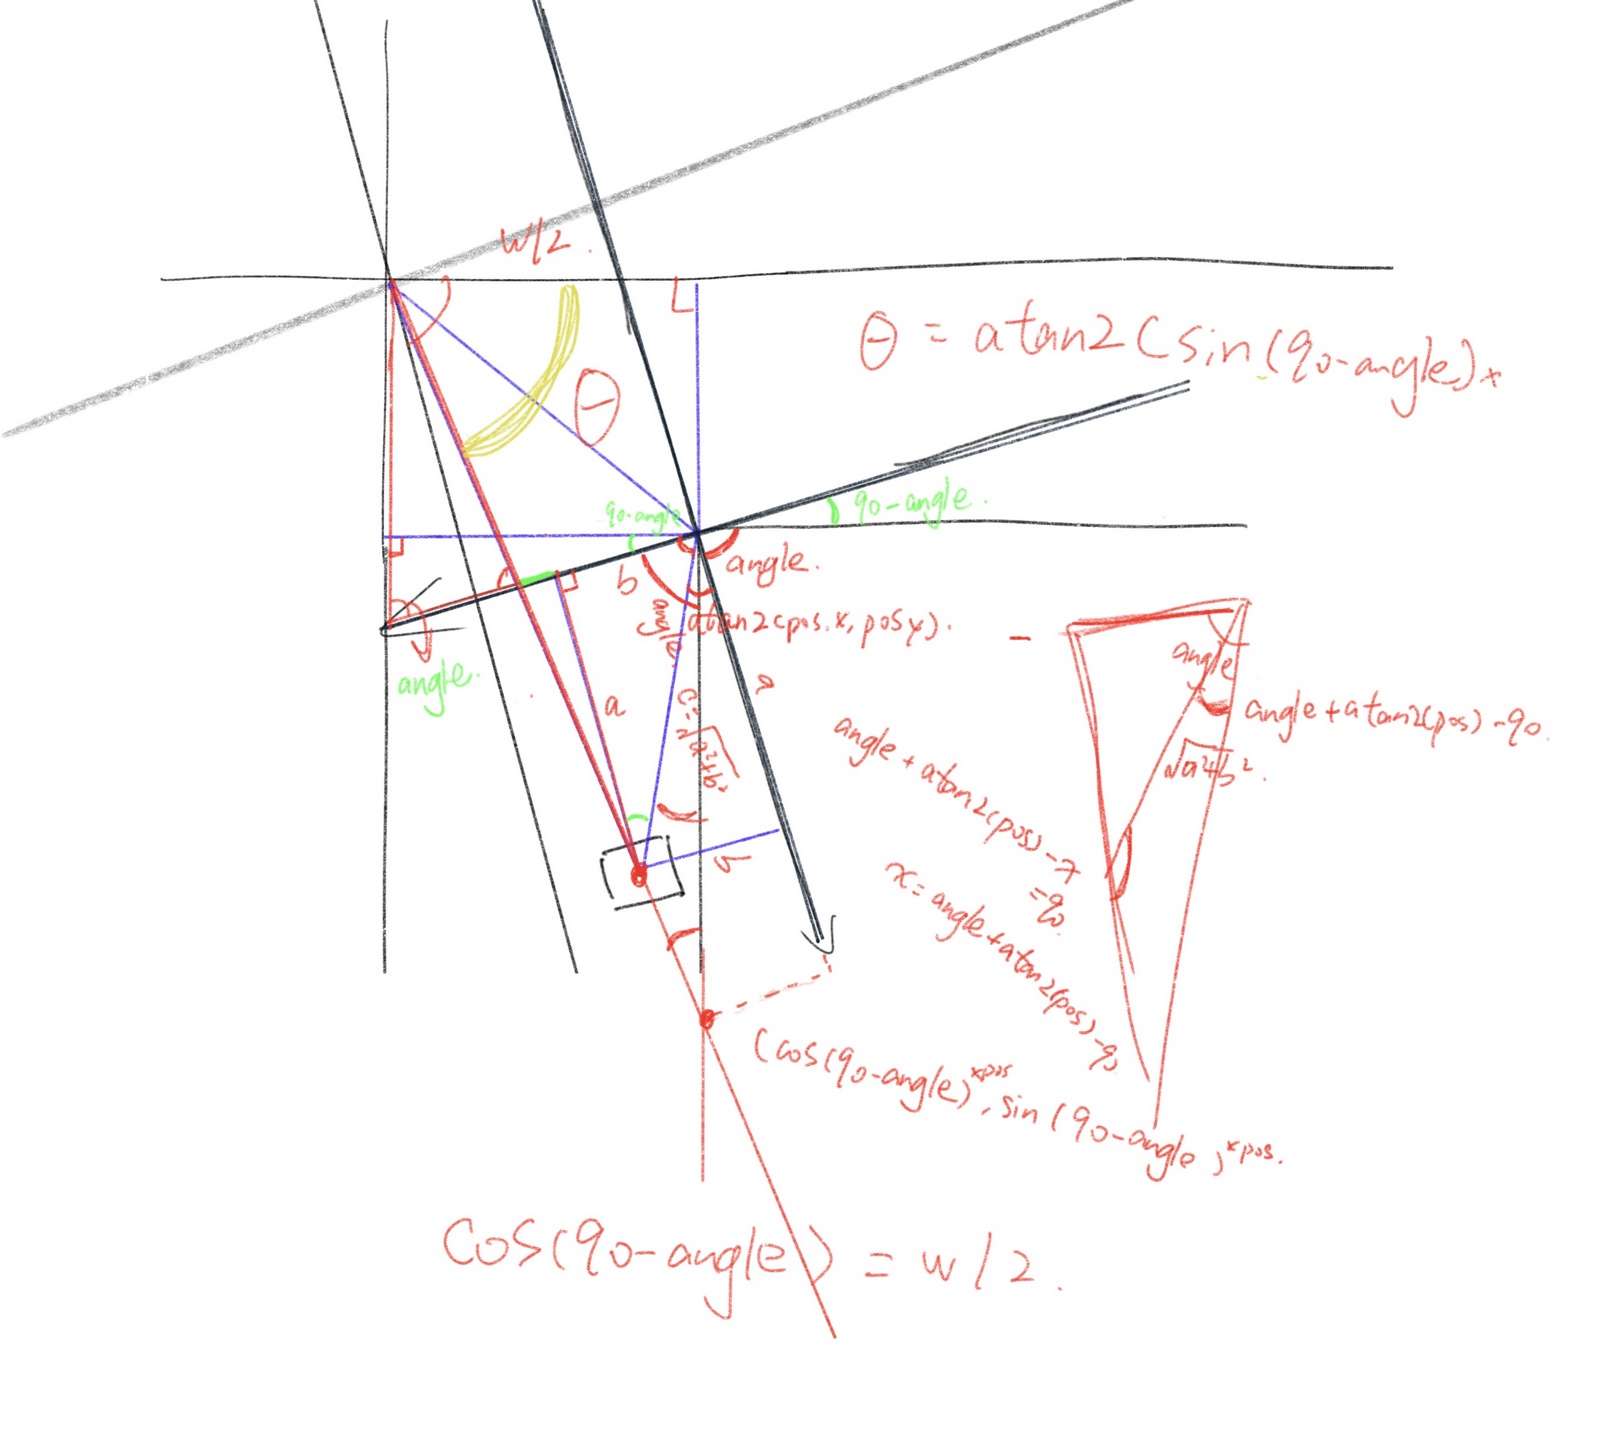 w/2.
θ = atan2(sin(90-angle)×
θ
90-angle
90-angle.
b
angle.
angle
atan2(pos.x, pos y).
angle.
a
a
c=√a²+b²
b
angle
angle+atan2(pos)-90.
√a²+b².
angle+atan2(pos)-x
=90.
x=angle+atan2(pos)-90
(cos(90-angle)×pos, sin(90-angle)×pos.
cos(90-angle) = w/2.